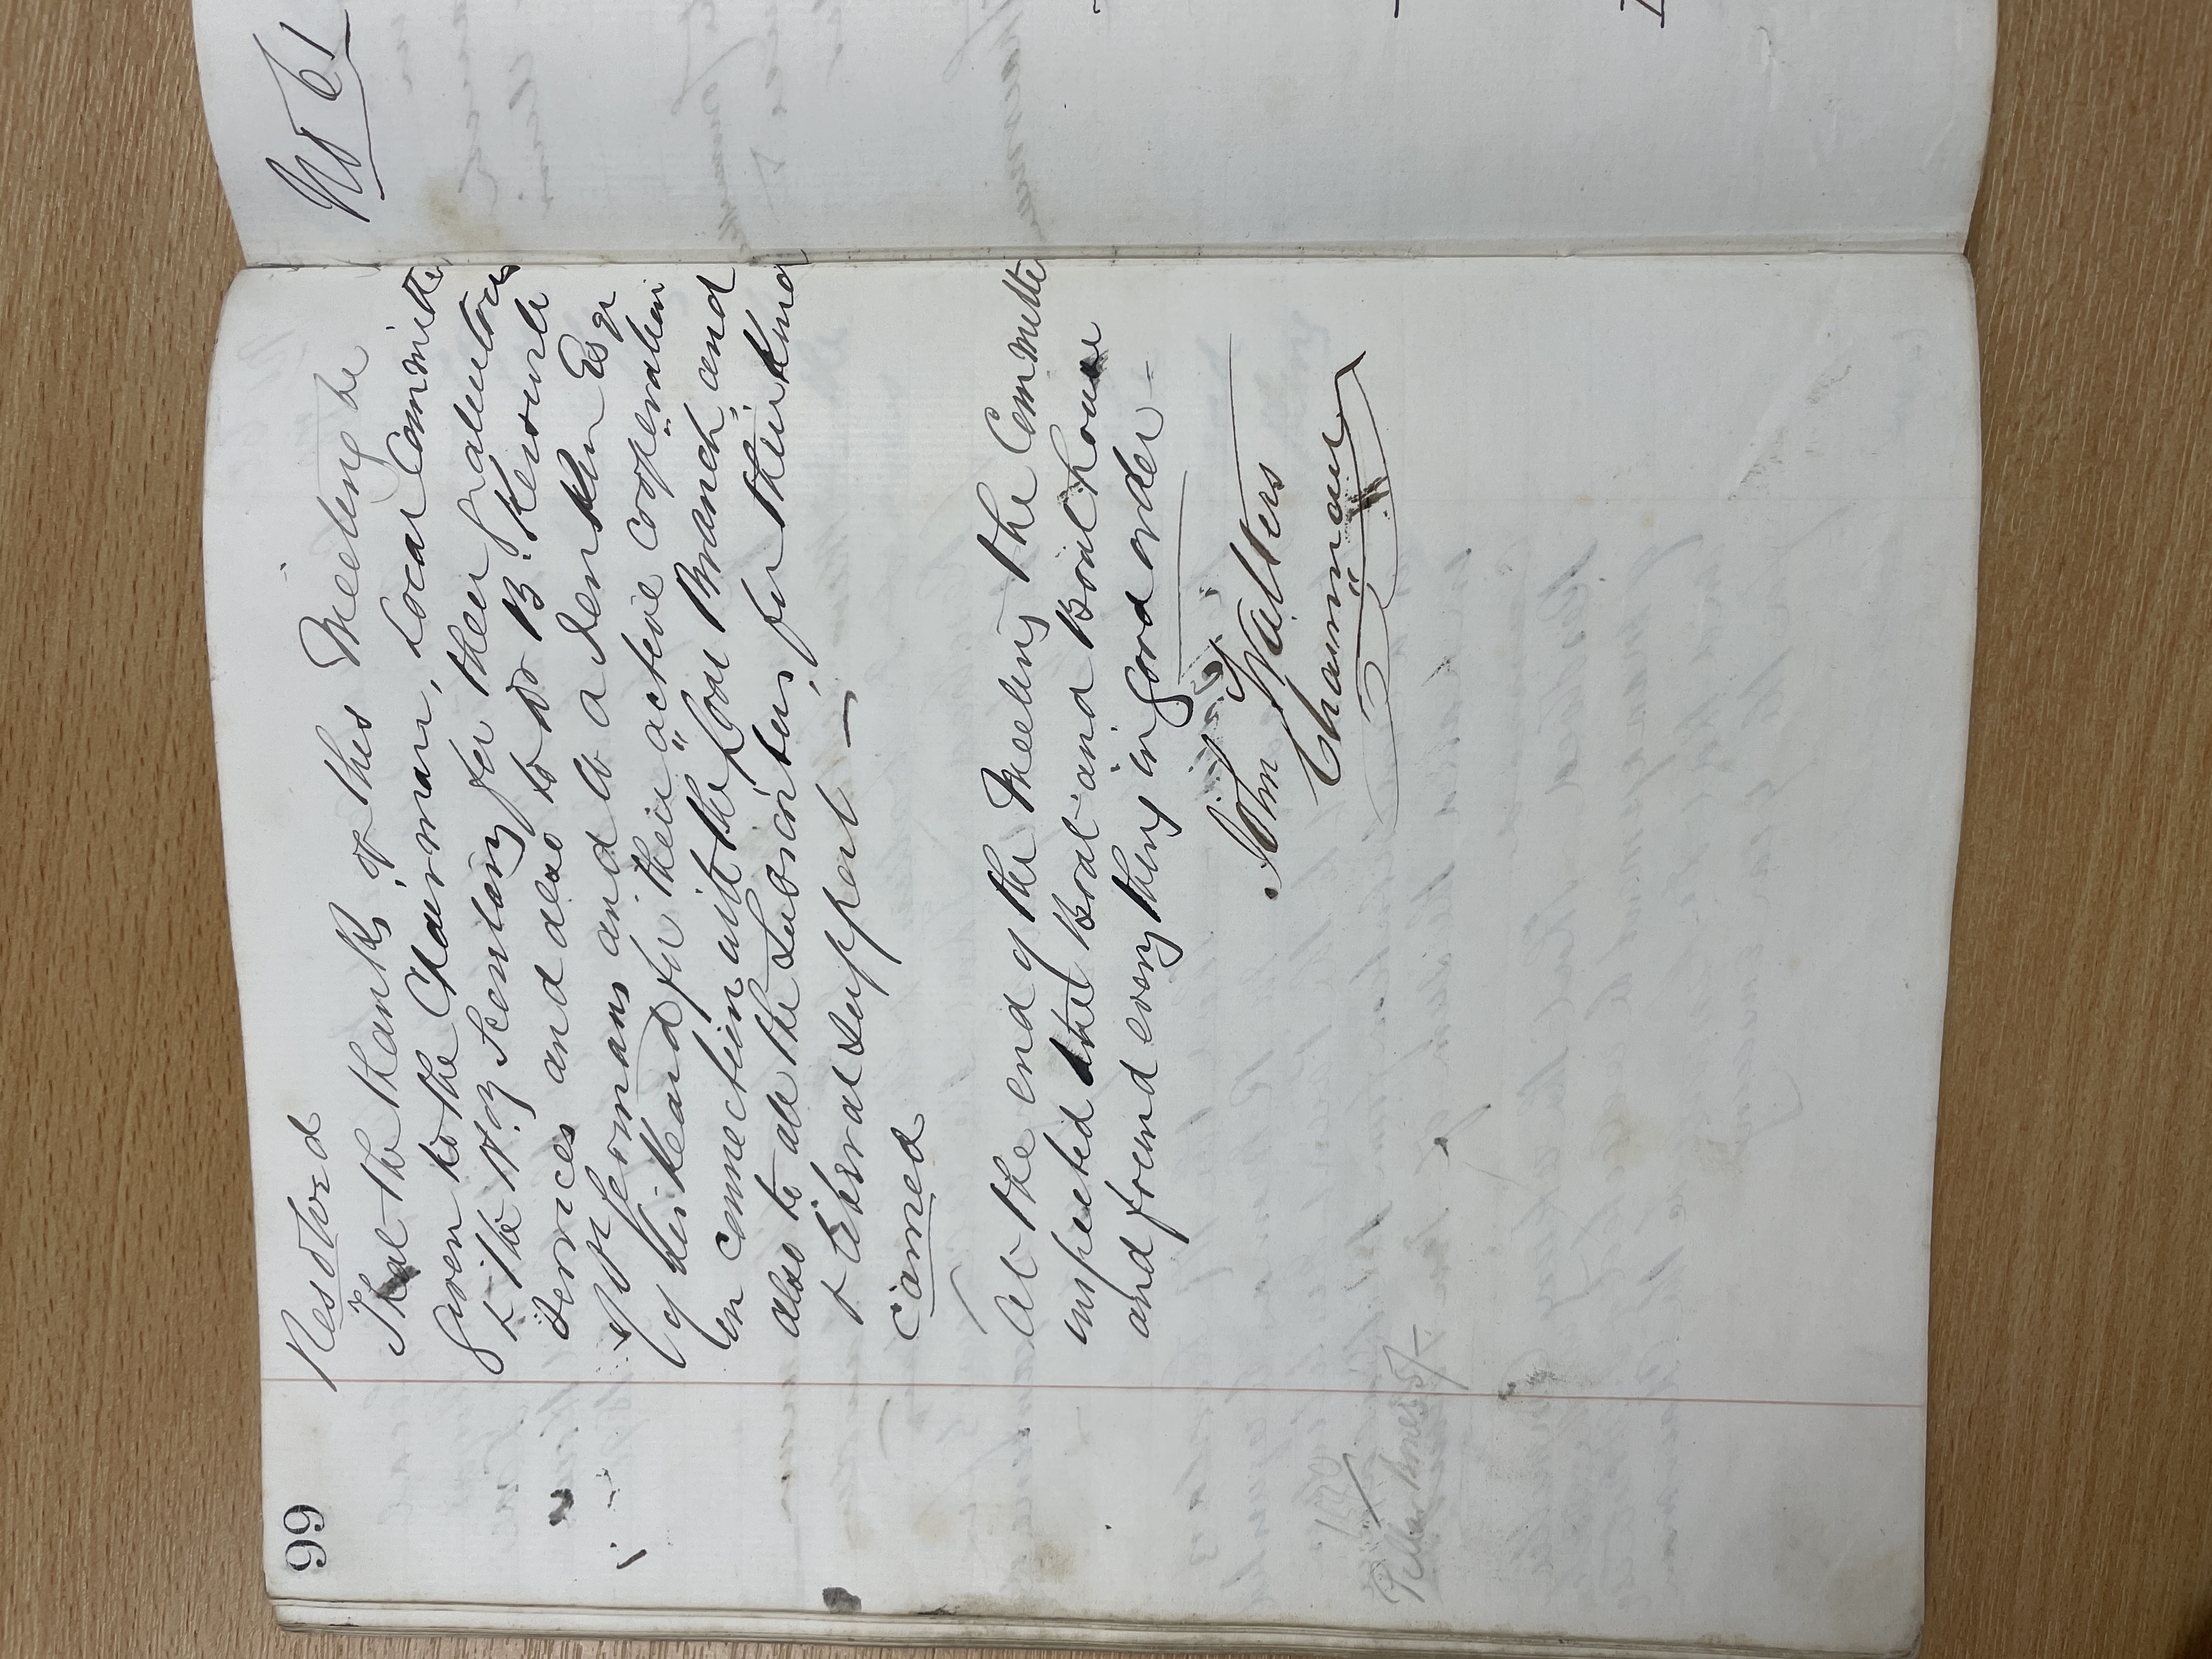 99
Resolved
That the thanks, of this Meeting be
given to the Chairman, Local Committe
& the Hy Secretary for their gratuitous
Services and also to Dr B. Havard
of Newport and to a Jenkin Esqr
of for their "active cooperation
in connection with the Local Branch, and
also to all the Subscribers, for their kind
& liberal support —
carried
At the end of the Meeting the Committe
inspected the Boat and Boat house
and found every thing in good order —
John Walters
Chairman
No 61